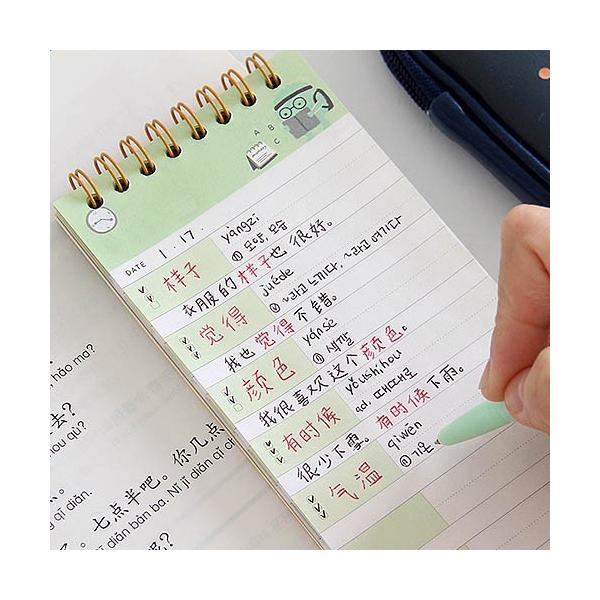 A B
DATE 1.17.
样子 yàngzi
① 모양, 모습
衣服的样子也很好。
觉得 juéde
① ~라고 느끼다, ~라고 여기다
我也觉得不错。
颜色 yánsè
① 색깔
我很喜欢这个颜色。
有时候 yǒushíhou
ad. 때때로
很少下雪。有时候下雨。
气温 qìwēn
① 기온
hǎo ma?
去?
qù?
点。你几点
diǎn. Nǐ jǐ diǎn qǐ
七点半吧。
qī diǎn bàn ba.